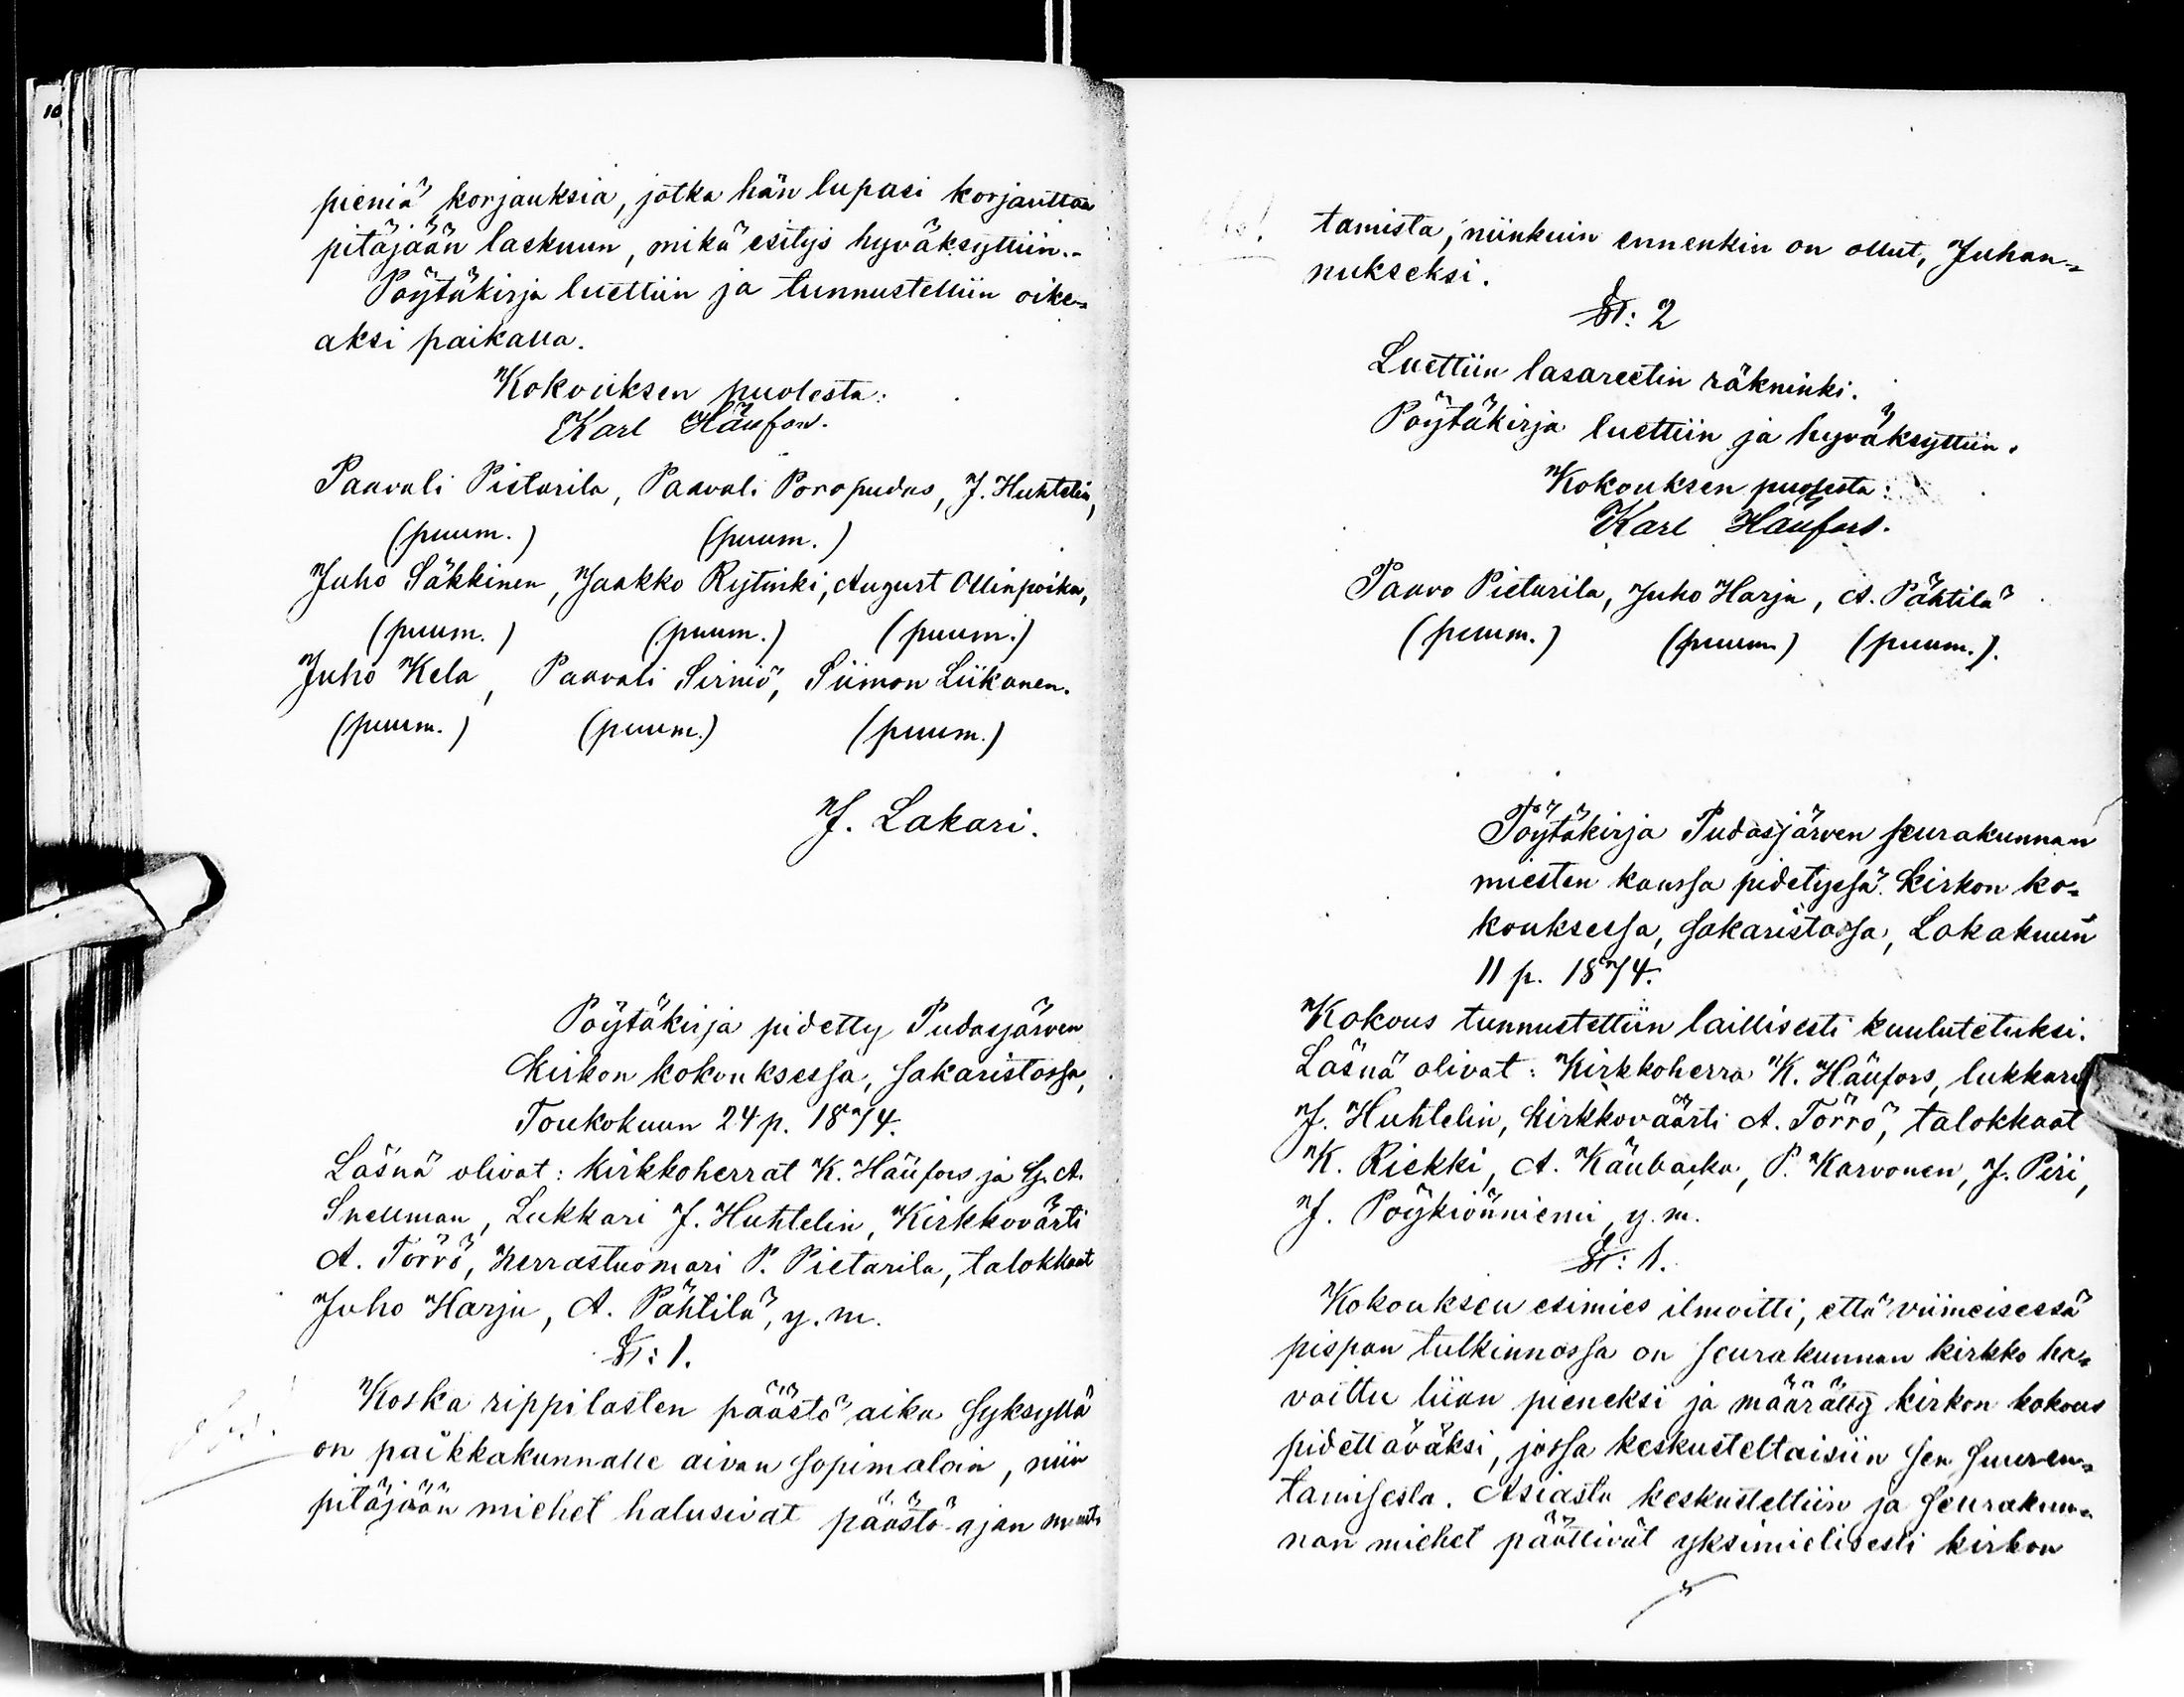 10
pieniä korjauksia, jotka hän lupasi korjauttaa
pitäjään laskuun, mikä esitys hyväksyttiin.-
Pöytäkirja luettiin ja tunnustettiin oike=
aksi paikalla.
Kokouksen puolesta:
Karl Häufors.
Paavali Pietarila, Paavali Poropudas, J. Huhtelin,
(puum.) (puum.)
Juho Säkkinen, Jaakko Rytinki, August Ollinpoika,
(puum.) (puum.) (puum.)
Juho Kela, Paavali Sirniö, Siimon Liikanen.
(puum.) (puum.) (puum.)
J. Lakari.
Pöytäkirja pidetty Pudasjärven
Kirkon kokouksessa, sakaristossa,
Toukokuun 24 p. 1874.
Läsnä olivat: kirkkoherrat K. Häufors ja G. A.
Snellman, Lukkari J. Huhtelin, Kirkkovärti
A. Törrö, herrastuomari P. Pietarila, talokkaat
Juho Harju, A. Pähtilä, y. m.
§: 1.
Koska rippilasten päästö aika syksyllä
on paikkakunnalle aivan sopimatoin, niin
pitäjään miehet halusivat päästö ajan muut-
tamista, niinkuin ennenkin on ollut, Juhan=
nukseksi.
§: 2
Luettiin lasareetin räkninki.
Pöytäkirja luettiin ja hyväksyttiin.
Kokouksen puolesta:
Karl Häufors.
Paavo Pietarila, Juho Harju, A. Pähtilä
(puum.) (puum.) (puum.).
Pöytäkirja Pudasjärven seurakunnan
miesten kanssa pidetyssä Kirkon ko=
kouksessa, sakaristossa, Lokakuun
11 p. 1874.
Kokous tunnustettiin laillisesti kuulutetuksi.
Läsnä olivat: Kirkkoherra K. Häufors, lukkari
J. Huhtelin, Kirkkoväärti A. Törrö, talokkaat
K. Riekki, A. P. Karvonen, J. Piri,
J. Pöykiönniemi, y. m.
§: 1.
Kokouksen esimies ilmoitti, että viimeisessä
pispan tutkinnossa on seurakunnan kirkko ha=
vaittu liian pieneksi ja määrätty kirkon kokous
pidettäväksi, jossa keskusteltaisiin sen suuren=
tamisesta. Asiasta keskusteltiin ja seurakun=
nan miehet päättivät yksimielisesti kirkon